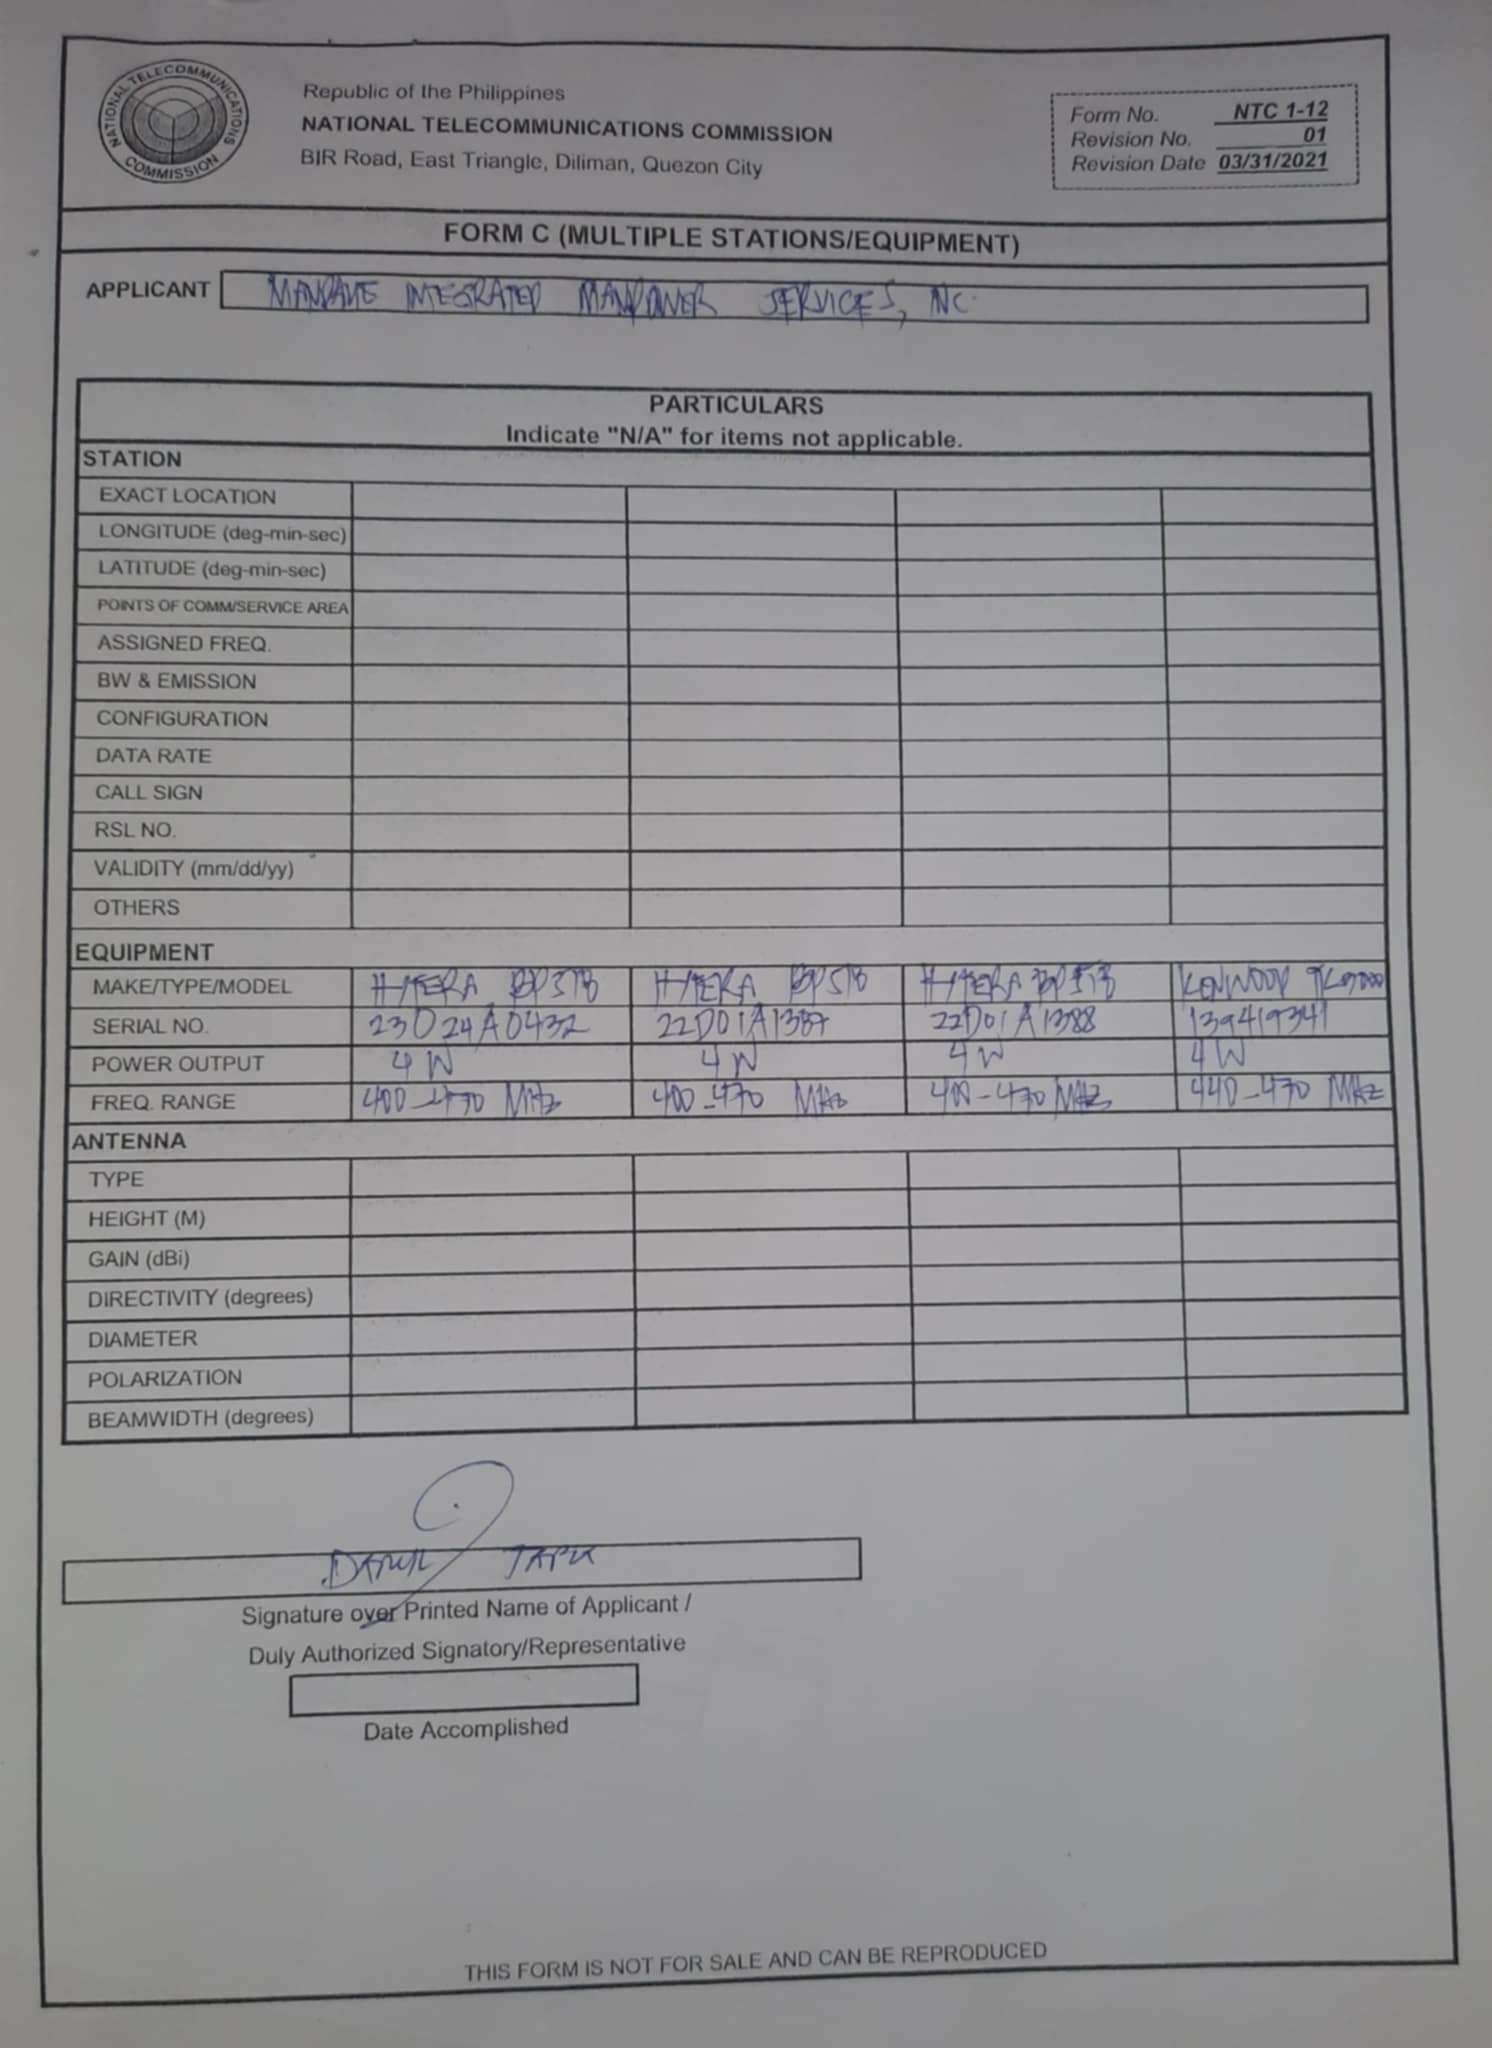 NATIONAL TELECOMMUNICATIONS COMMISSION
Republic of the Philippines
NATIONAL TELECOMMUNICATIONS COMMISSION
BIR Road, East Triangle, Diliman, Quezon City
Form No. NTC 1-12
Revision No. 01
Revision Date 03/31/2021
FORM C (MULTIPLE STATIONS/EQUIPMENT)
APPLICANT INTEGRATED MANPOWER SERVICES, INC.
PARTICULARS
Indicate "N/A" for items not applicable.
STATION
EXACT LOCATION
LONGITUDE (deg-min-sec)
LATITUDE (deg-min-sec)
POINTS OF COMM/SERVICE AREA
ASSIGNED FREQ.
BW & EMISSION
CONFIGURATION
DATA RATE
CALL SIGN
RSL NO.
VALIDITY (mm/dd/yy)
OTHERS
EQUIPMENT
MAKE/TYPE/MODEL HYTERA HYTERA HYTERA KENWOOD
SERIAL NO. 23024A0432 22D01A1387 22D01A1388 139419341
POWER OUTPUT 4W 4W 4W 4W
FREQ. RANGE 400-470 MHz 400-470 MHz 400-470 MHz 440-470 MHz
ANTENNA
TYPE
HEIGHT (M)
GAIN (dBi)
DIRECTIVITY (degrees)
DIAMETER
POLARIZATION
BEAMWIDTH (degrees)
Signature over Printed Name of Applicant /
Duly Authorized Signatory/Representative
Date Accomplished
THIS FORM IS NOT FOR SALE AND CAN BE REPRODUCED